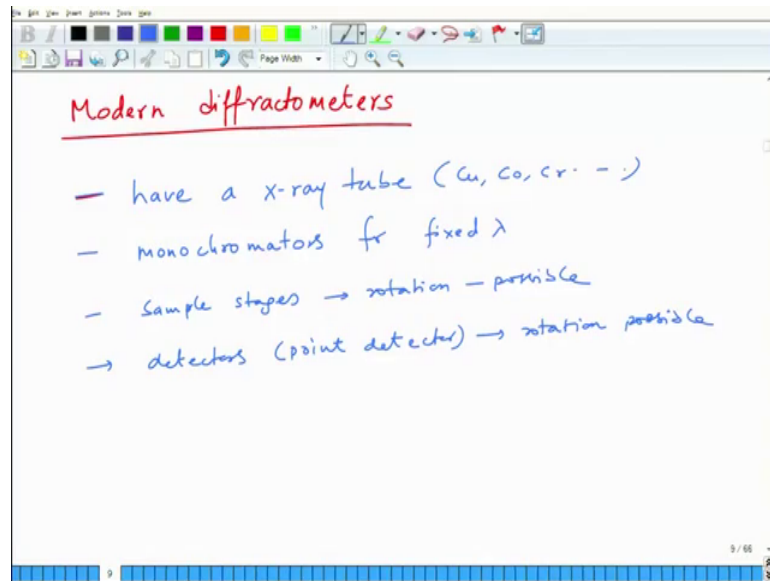 File Edit View Insert Actions Tools Help
B I
Page Width
Modern diffractometers
— have a x-ray tube (Cu, Co, Cr. - - .)
— monochromators fr fixed λ
— sample stages → rotation — possible
→ detectors (point detector) → rotation possible
9 / 66
9